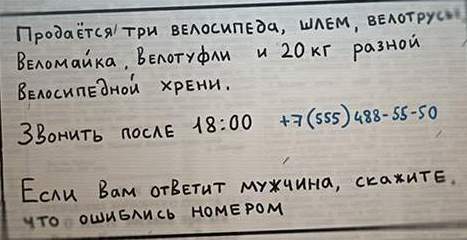 Продаётся три велосипеда, шлем, велотрусы
Веломайка, Велотуфли и 20 кг разной
велосипедной хрени.
Звонить после 18:00 +7(555)488-55-50
Если Вам ответит мужчина, скажите,
что ошиблись номером